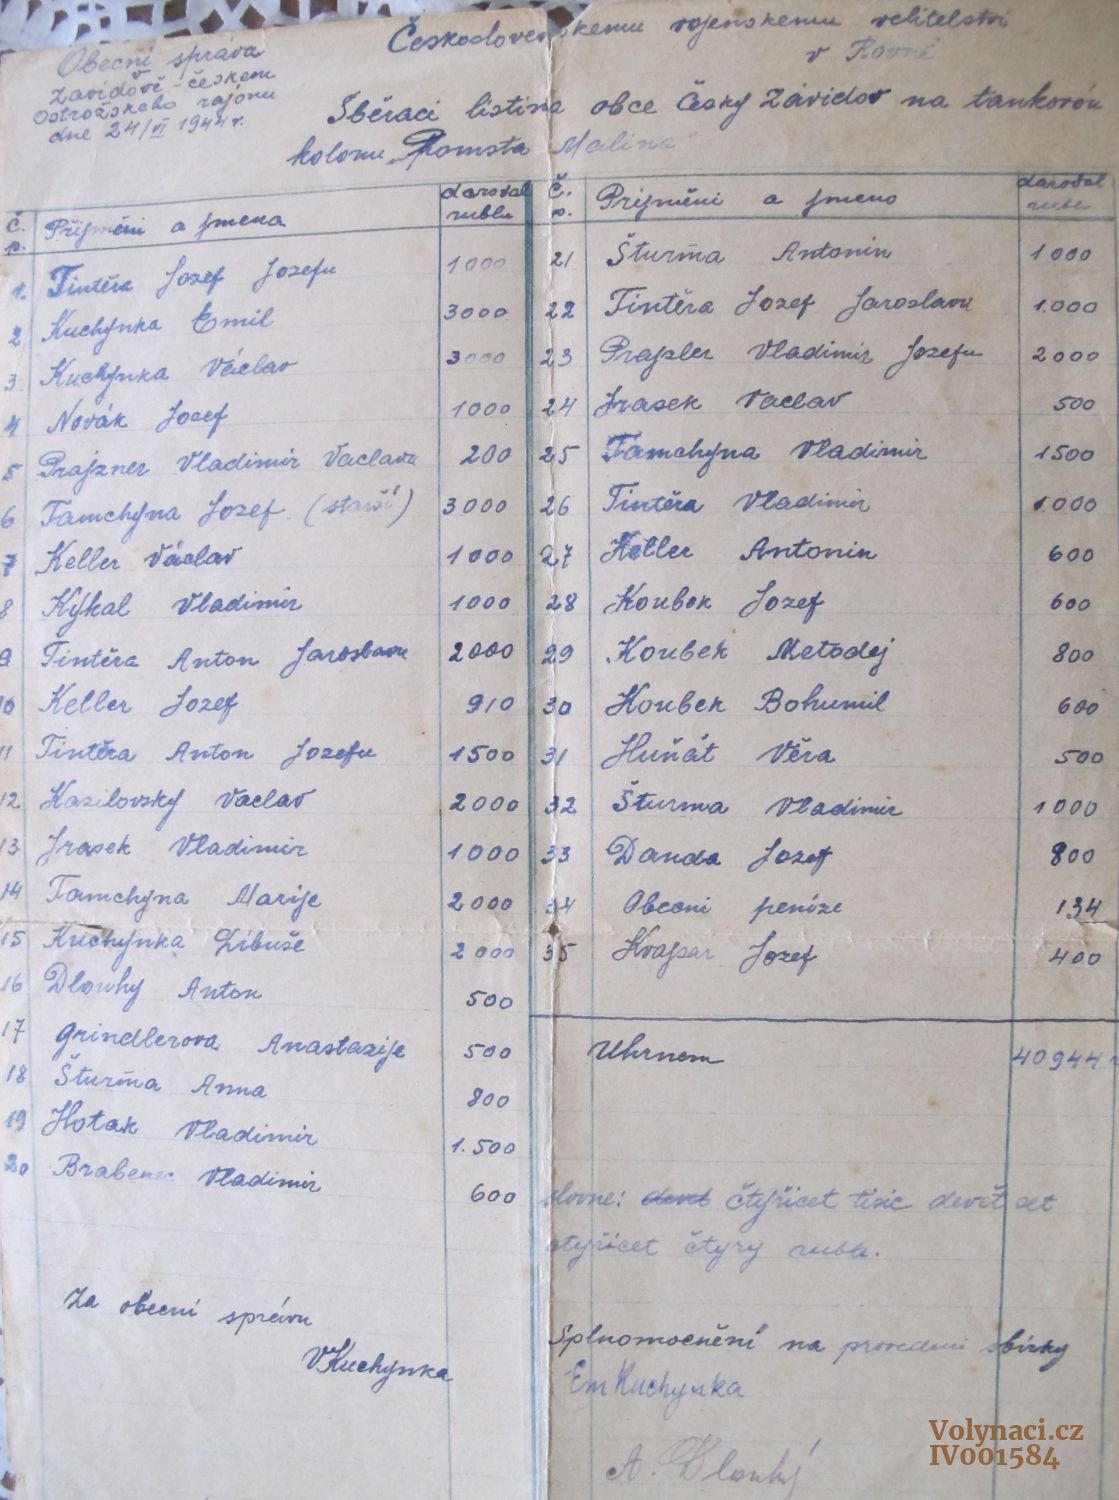 Československemu vojenskemu velitelstvi
v Rovně
Obecni správa
Zavidově-českem
Ostrožskeho rajónu
dne 24/VI 1944 r.
Sběraci listina obce Česky Závidov na tankovou
kolonu „Pomsta Malina"
Č. p. Přijmeni a jmena daroval rublu
1. Tintěra Jozef Jozefu 1000
2 Kuchynka Emil 3000
3 Kuchynka Václav 3000
4 Novák Josef 1000
5 Prajzner Vladimir Vaclava 200
6 Tamchyna Jozef (starší) 3000
7 Keller Václav 1000
8 Kýkal Vladimir 1000
9 Tintěra Anton Jaroslavu 2000
10 Keller Jozef 910
11 Tintěra Anton Jozefu 1500
12 Kozilovsky Vaclav 2000
13 Jrasek Vladimir 1000
14 Tamchyna Marije 2000
15 Kuchynka Libuše 2000
16 Dlouhy Anton 500
17 Grindlerova Anastazije 500
18 Šturma Anna 800
19 Hotak Vladimir 1.500
20 Brabenec Vladimir 600
Za obecní správu
VKuchynka
Č. p. Prijměni a jmeno daroval rublu
21 Šturma Antonin 1000
22 Tintěra Jozef Jaroslavu 1.000
23 Prajsler Vladimir Jozefu 2000
24 Jrasek Vaclav 500
25 Tamchyna Vladimir 1500
26 Tintěra Vladimir 1.000
27 Keller Antonin 600
28 Koubek Jozef 600
29 Koubek Metoděj 800
30 Koubek Bohumil 600
31 Huňát Věra 500
32 Šturma Vladimir 1000
33 Danda Jozef 800
34 Obecni peníze 134
35 Kvapar Jozef 400
Uhrnem 40944 r
slovne: devet čtyřicet tisic devět set
čtyřicet čtyry ruble.
Splnomocnění na provedeni sbírky
Em Kuchynka
A. Dlouhý
Volynaci.cz
IV001584